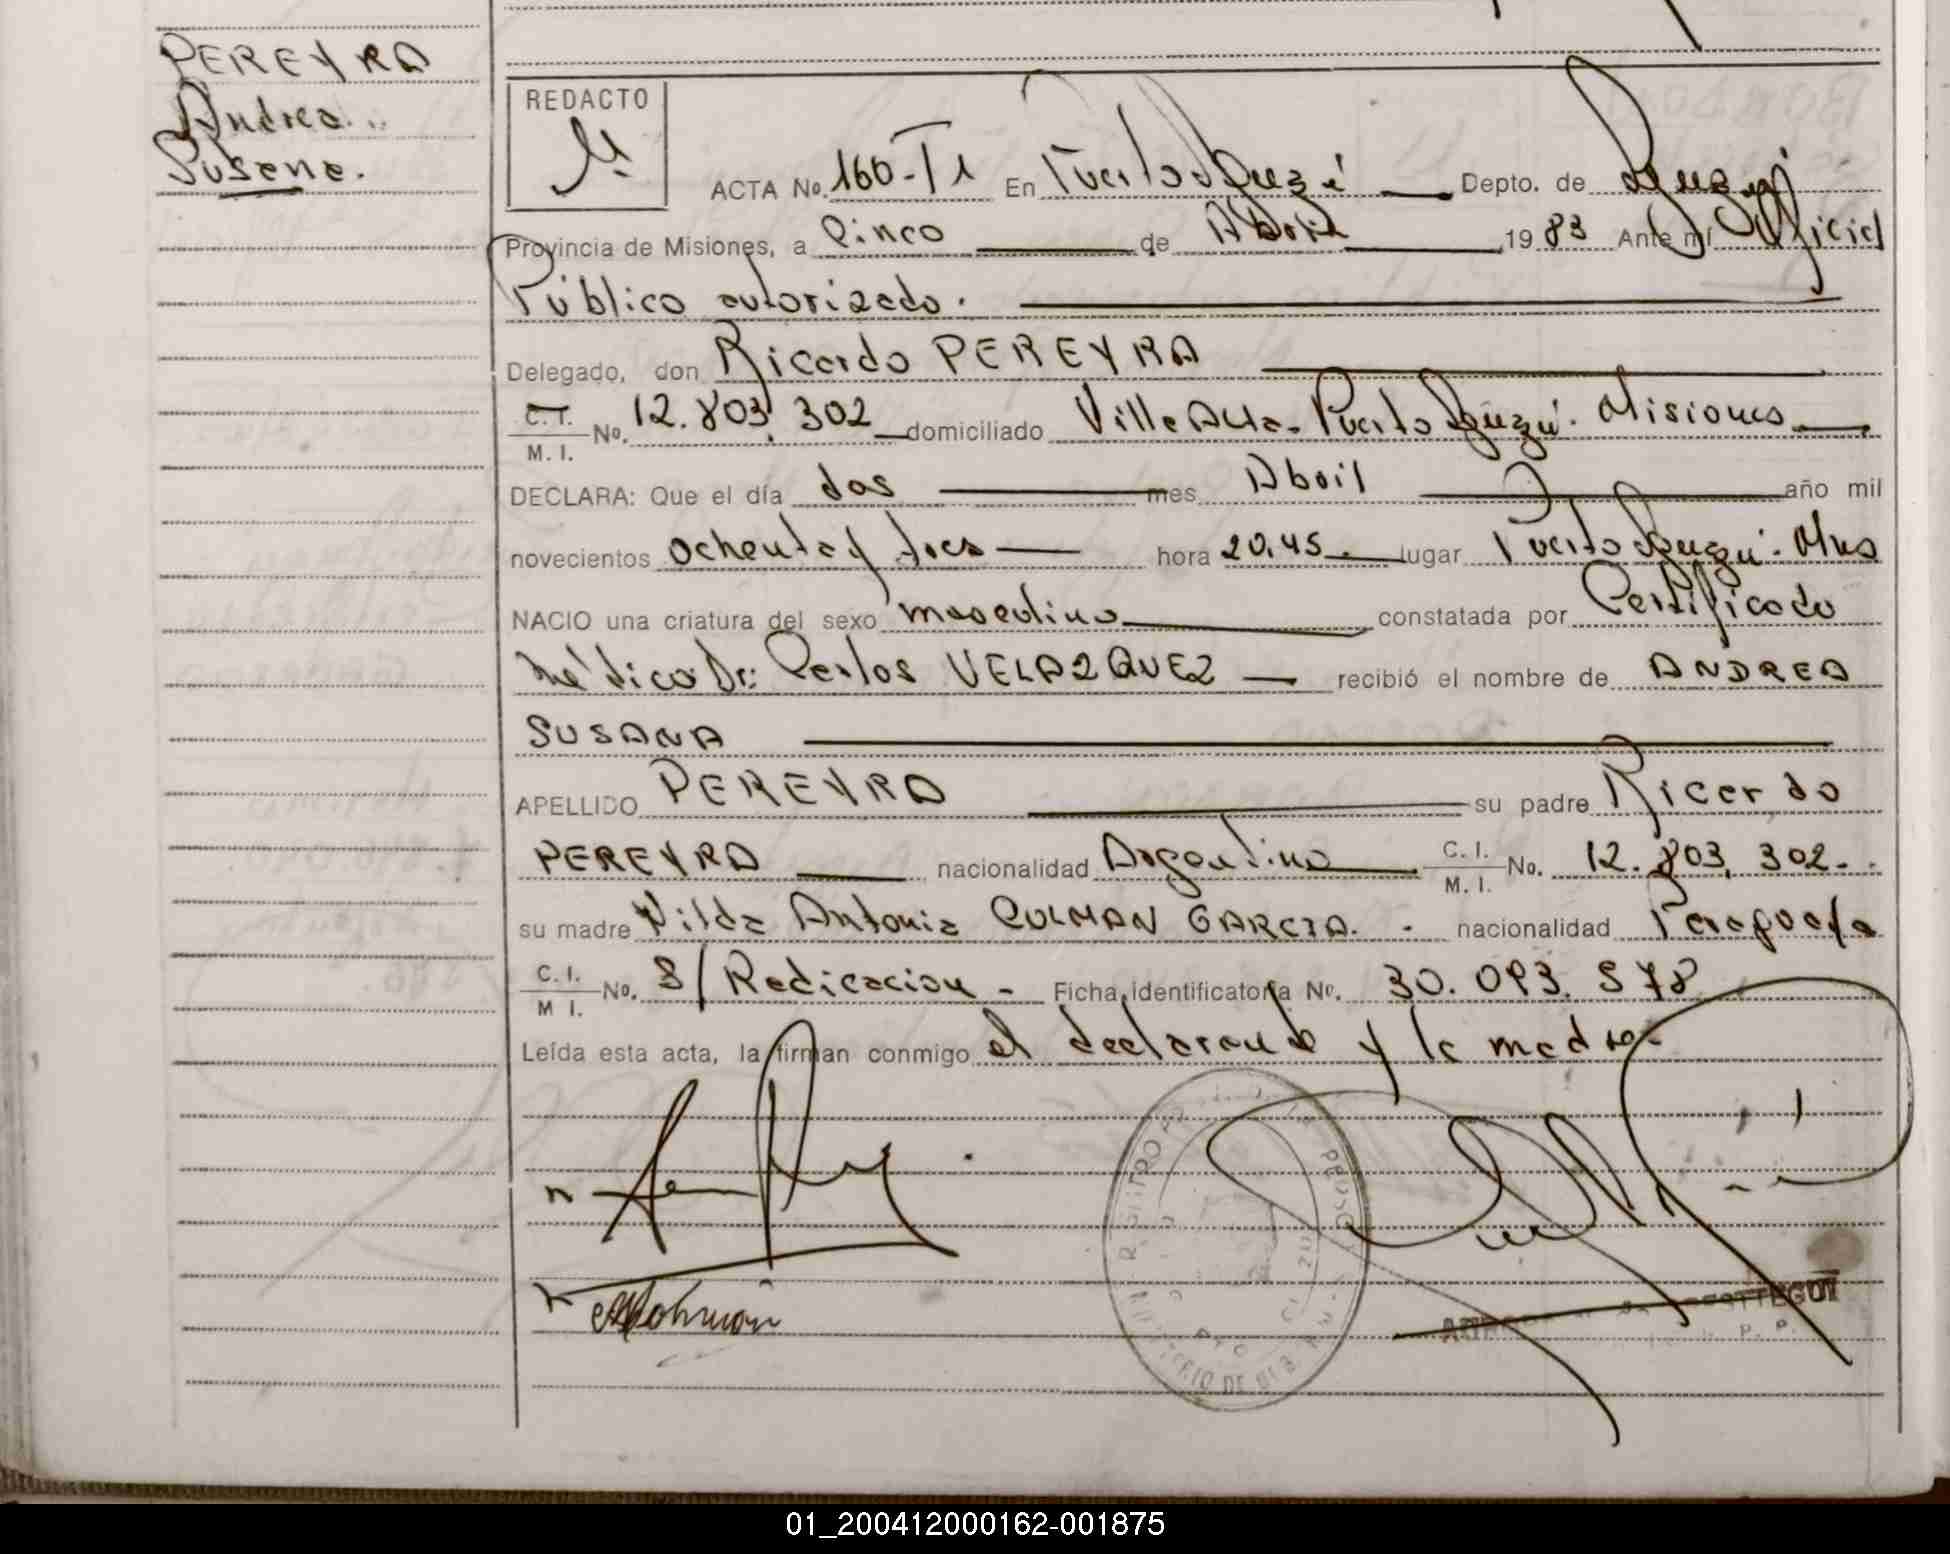 PEREYRA
Andrea
Susana.
REDACTO
ACTA No. 160-T1 En Puerto Iguazú Depto. de Iguazú
Provincia de Misiones, a Cinco de Abril 1983 Ante mí Oficial
Público autorizado.
Delegado, don Ricardo PEREYRA
C.I. M. I. No. 12.803.302 domiciliado Villa Alta - Puerto Iguazú. Misiones
DECLARA: Que el día dos mes Abril año mil
novecientos ochenta y tres hora 20.45 lugar Puerto Iguazú. Mnes
NACIO una criatura del sexo masculino constatada por Certificado
Médico Dr: Carlos VELAZQUEZ recibió el nombre de ANDREA
SUSANA
APELLIDO PEREYRA su padre Ricardo
PEREYRA nacionalidad Argentina C. I. M. I. No. 12.803.302.
su madre Antonia COLMAN GARCIA. nacionalidad Paraguaya
C. I. M I. No. S/Radicacion - Ficha identificatoria No. 30.093.578
Leída esta acta, la firman conmigo el declarante y la madre.
01_200412000162-001875